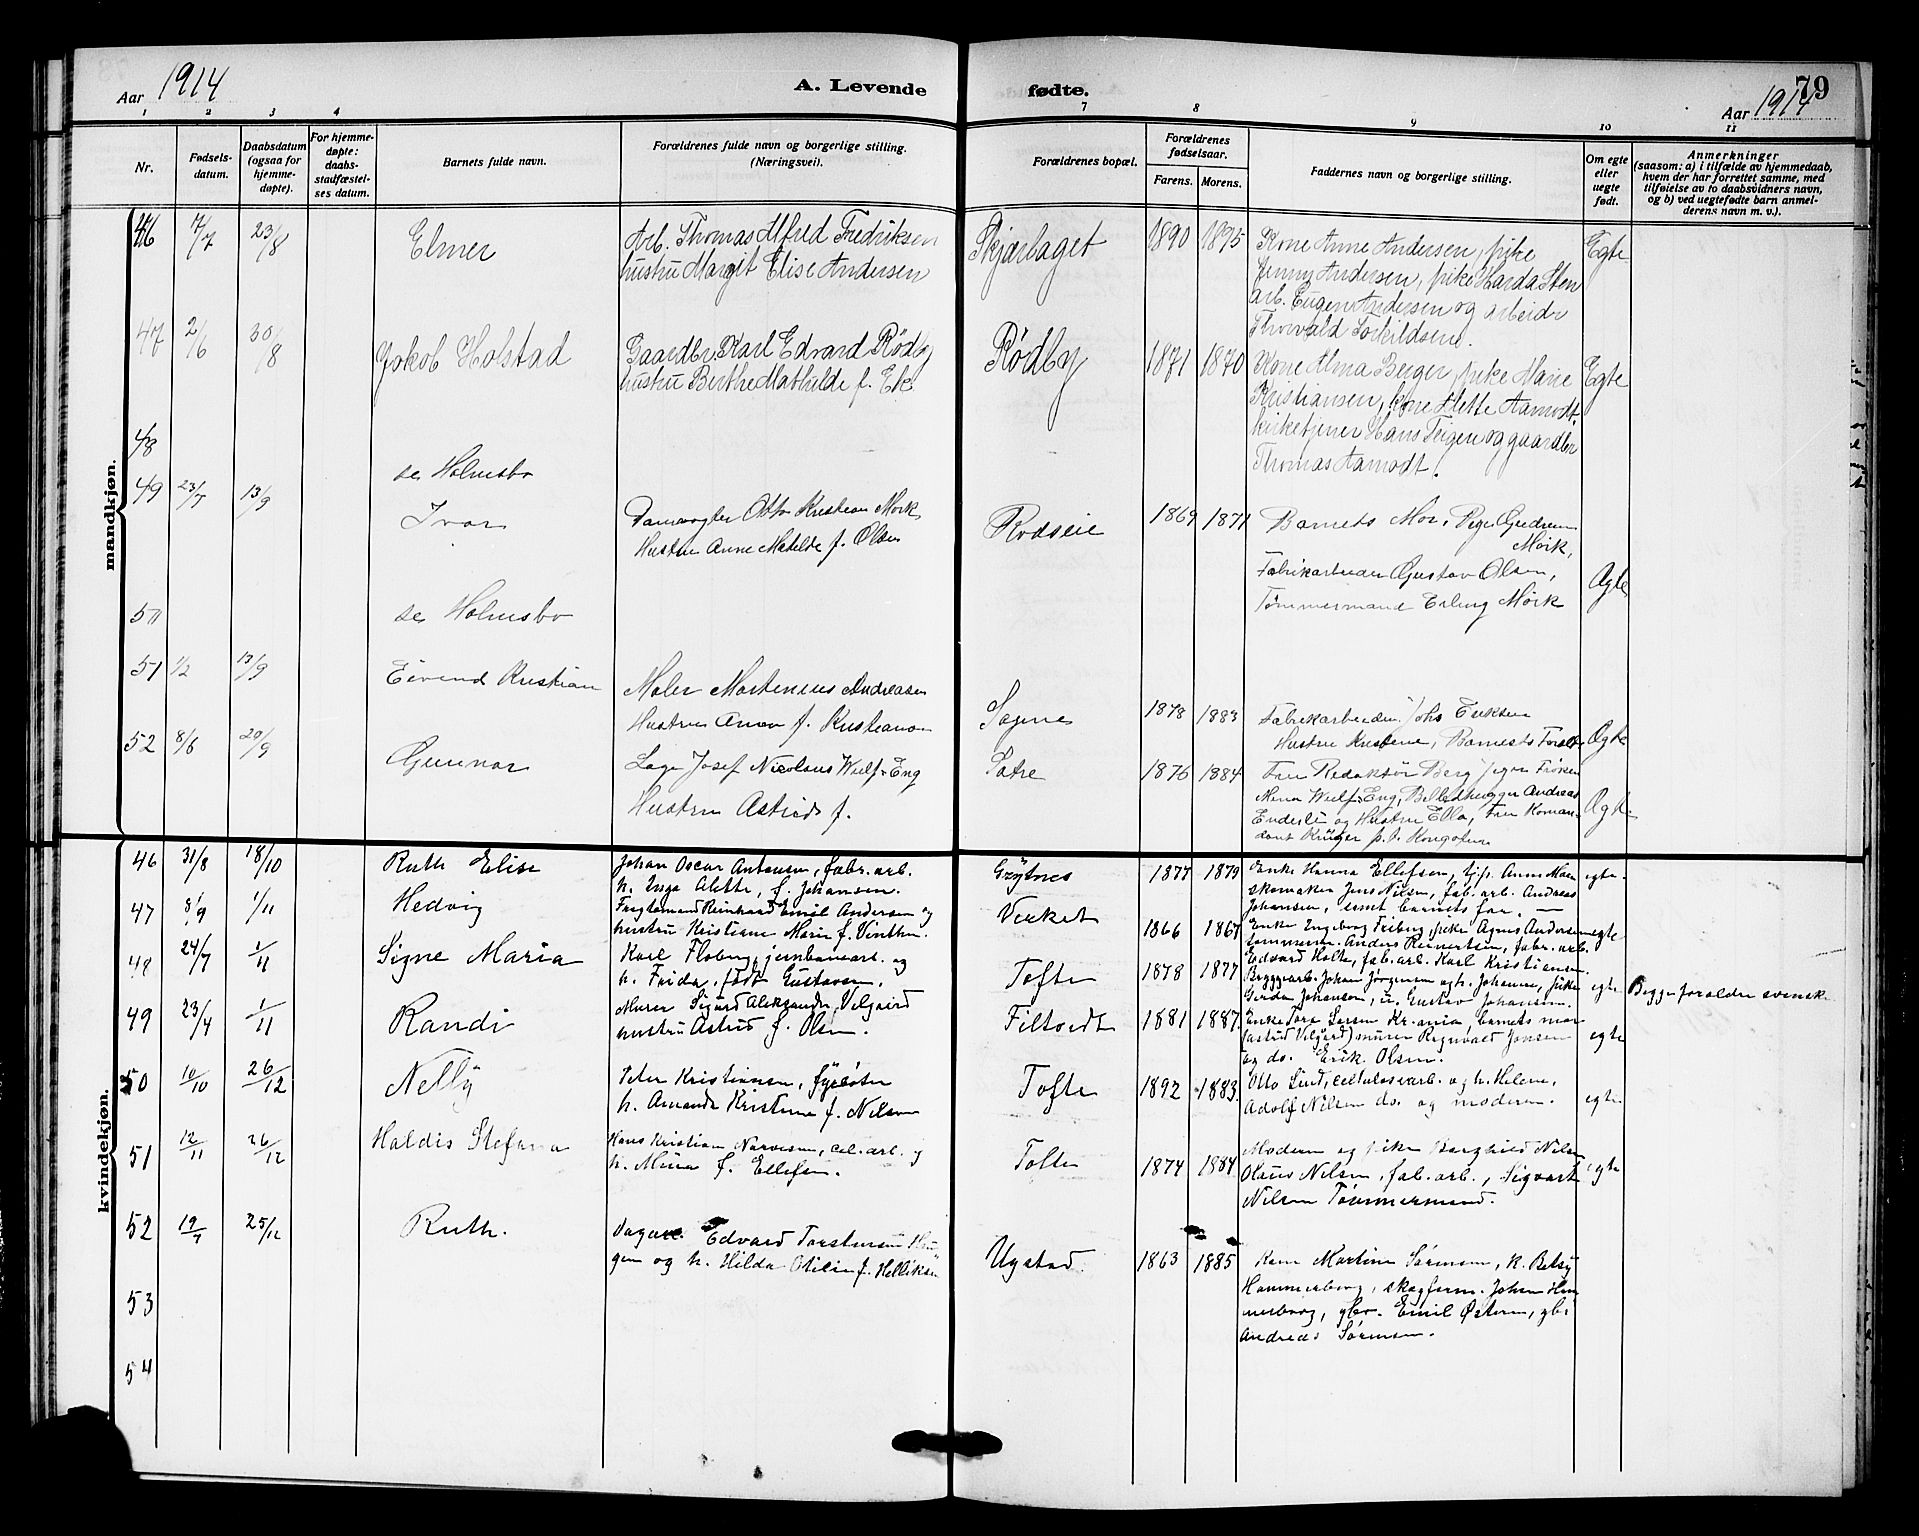 Aar 1914
A. Levende
fødte.
79
Aar 1914
1 2 3 4 7 8 9 10 11
Nr.
Fødsels-
datum.
Daabsdatum
(ogsaa for
hjemme-
døpte).
For hjemme-
døpte:
daabs-
stadfæstel-
ses datum.
Barnets fulde navn.
Forældrenes fulde navn og borgerlige stilling.
(Næringsvei).
Forældrenes bopæl.
Forældrenes
fødselsaar.
Farens. Morens.
Faddernes navn og borgerlige stilling.
Om egte
eller
uegte
født.
Anmerkninger
(saasom: a) i tilfælde av hjemmedaab,
hvem der har forrettet samme, med
tilføielse av to daabsvidners navn,
og b) ved uegtefødte barn anmel-
derens navn m. v.).
mandkjøn.
46 7/7 23/8 Elmer
Arb. Thomas Alfred Fredriksen
hustru Margit Elise Andersen
Skjærlaget 1890 1895
Kone Anne Andersen, pike
Jenny Andersen, pike Harda Sten
arb. Eugen Andersen og arbeider
Thorvald Torkildsen.
Egte
47 2/6 30/8 Jakob Holstad
Gaardbr. Karl Edvard Rødby
hustru Berthe Mathilde f. Ek
Rødby 1871 1870
Kone Alma Berger, pike Marie
Kristiansen, kone Mette Aamodt,
kirketjener Hans Teigen og gaardbr
Thomas Aamodt.
Egte
48 se Holmsbo
49 23/7 13/9 Ivar
Damvogter Otto Kristian Mørk
Hustru Anne Matilde f. Olsen
Rødseie 1869 1871
Barnets Mor, Pige Gudrun
Mørk,
Fabrikarbeider Gustav Olsen,
Tømmermand Erling Mørk
Ægte
50 se Holmsbo
51 1/2 13/9 Eivend Kristian
Maler Martenius Andreasen
Hustru Anna f. Kristianson
Sagene 1878 1883
Fabrikarbeider Johs Eriksen
Hustru Kristine, Barnets
Ægte
52 8/6 20/9 Gunnar
Læge Josef Nicolaus Wulf-Eng
Hustru Astrid f.
Sætre 1876 1884
Fru Redaktør Berg, Frøken
Mena Wulf-Eng, Billedhugger Andreas
Enderle og Hustru Ella, Fru Koman-
dant Krüger
Ægte
kvindekjøn.
46 31/8 18/10 Ruth Elise
Johan Oscar Antonsen, fabr. arb.
h. Inga Alette, f. Johansen.
Grytnes 1877 1879
Enke Hanna Ellefsen, tj.p. Anna Moen
skomaker Jens Nilsen, fab. arb. Andreas
Johansen, samt barnets far.
egte
47 8/9 1/11 Hedvig
Fragtemand Reinhard Emil Andersen og
hustru Kristiane Marie f. Vinther.
Verket 1866 1867
Enke Ingeborg Friberg, pike Agnes Andersen
tømmerm. Anders Reinertsen, fabr. arb.
Edvard Holte, fab. arb. Karl Kristiansen.
egte
48 24/7 1/11 Signe Maria
Karl Floberg, jernbanearb. og
h. Frida, født Gustavsen.
Tofte 1878 1877
Byggearb. Johan Jørgensen og h. Johanne, pike
Gerda Johanson, u. Gustav Johansen.
egte
Begge foreldre svenske
49 23/4 1/11 Randi
Murer Sigurd Aleksander Velgaard
hustru Astrid f. Olsen.
Filtvedt 1881 1887
Enke Tora Larsen Kr.ania, barnets mor
(Astrid Velgård) murer Regnvald Jonsen
og do. Erik Olsen.
egte
50 10/10 26/12 Nelly
Peter Kristiansen, fyrbøter
h. Amanda Kristine f. Nilsen
Tofte 1892 1883
Otto Lind, cellulosearb. og h. Helene,
Adolf Nilsen do. og moderen.
egte
51 12/11 26/12 Haldis Stefana
Hans Kristian Narvesen, cel. arb. og
h. Mina f. Ellefsen.
Tofte 1874 1884
Moderen og piken Borghild Nilsen
Olaus Nilsen, fab. arb., Sigvart
Nilsen Tømmermand.
egte
52 19/7 25/12 Ruth.
Dagarb. Edvard Torstensen Hau-
gen og h. Hilda Otilie f. Helliksen
Ugstad 1863 1885
Kone Martine Sørensen, k. Betsy
Hammerborg, skogform. Johan Ham-
merborg, gbr. Emil Østern, gbr
Andreas Sørensen.
53
54